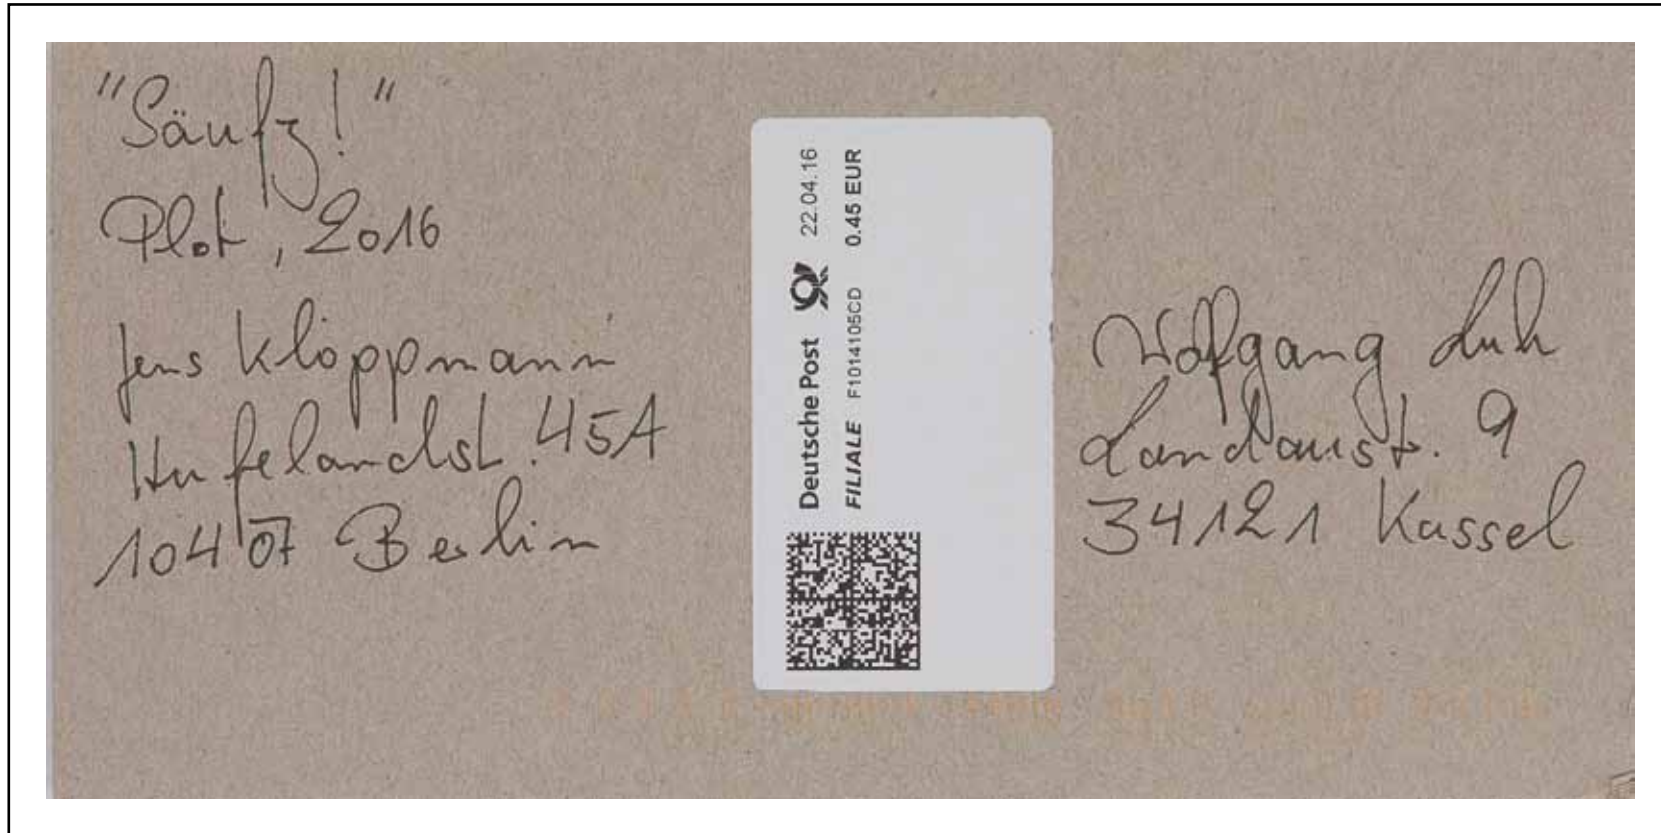 "Säufz!"
Plot, 2016
Jens Kloppmann
Hufelandst. 45A
10407 Berlin
Deutsche Post 22.04.16
FILIALE F1014105CD 0.45 EUR
Wolfgang Luh
Landaust. 9
34121 Kassel